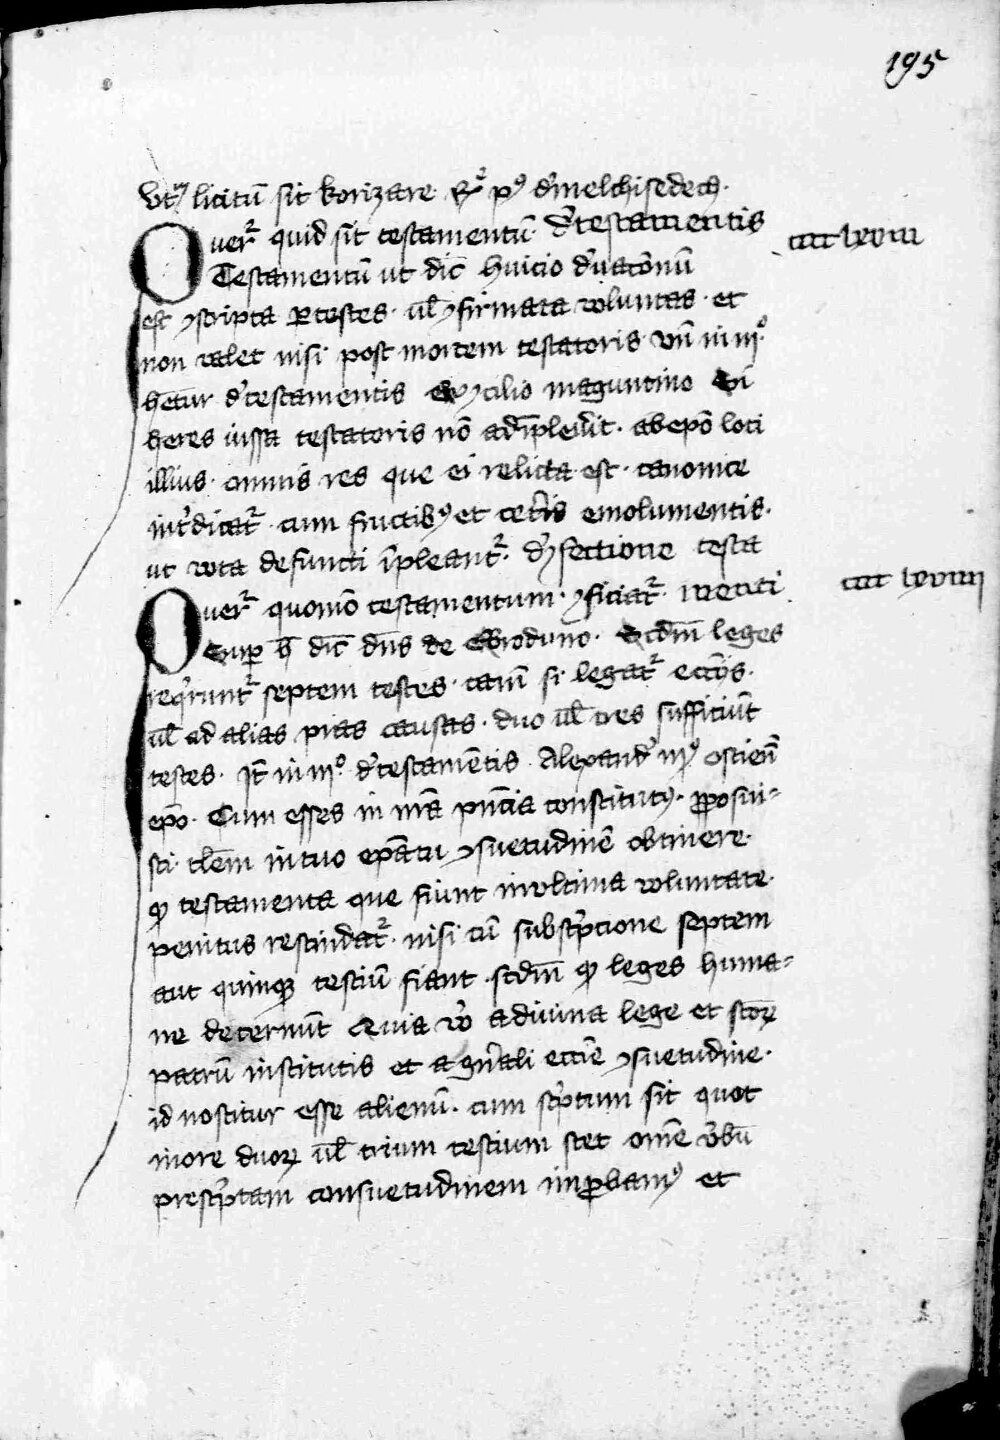 195
Utrum licitum sit korizare. Rͬ pꝰ dͬ melchisedech.
Querͬ quid sit testamentū. Dͬ testamentis
cccc lxviii
Testamentū ut dic̄ huicio
est ꝯscripta ꝑ testes. ul̄ ꝯfirmata voluntas. et
non valet nisi post mortem testatoris. Vn̄ in iiiº
het̄ur dͬ testamentis ex ꝯcilio maguntino Si
heres iussa testatoris nō adīpleūit. ab ep̄o loci
illius. omnis res que ei relicta est. canonice
int̾dicatͬ. cum fructibꝰ et cet̾is emolumentis.
ut vota defuncti īpleantͬ. Dͬ ꝯfectione testa
Querͬ quomō testamentum. ꝯficiatͬ. menti
cccc lxviiii
Suꝑ h̄ dic̄ dn̄s de Ebroduno. Scdm̄ leges
reqͥruntͬ septem testes. tam̄ si legatͬ ecc̄iis.
ul̄ ad alias pias causas. duo ul̄ tres sufficiūt
testes. It̄ in iiiº dͬ testamētis. Alexandͬ iiiꝰ ostien̄
ep̄o. Cum esses in nr̄a pn̄cia constitutꝰ. ꝓposui-
sti. tl̄em in tuo ep̄atu ꝯsuetudinē obtinere.
ꝙ testamenta que fiunt in ultima voluntate.
penitus rescindātͬ. nisi cū subscͥptione septem
aut quinqꝫ testiū fiant. scdm̄ ꝙ leges huma-
ne decernūt Quia v̾o a divina lege et scōꝝ
patrū institutis et a gn̄ali ecc̄ie ꝯsuetudine.
id noscitur esse alienū. cum scͥptum sit quot
in ore duoꝝ ul̄ trium testium stet om̄e v̾bū
prescͥptam consuetudinem inꝓbamꝰ et